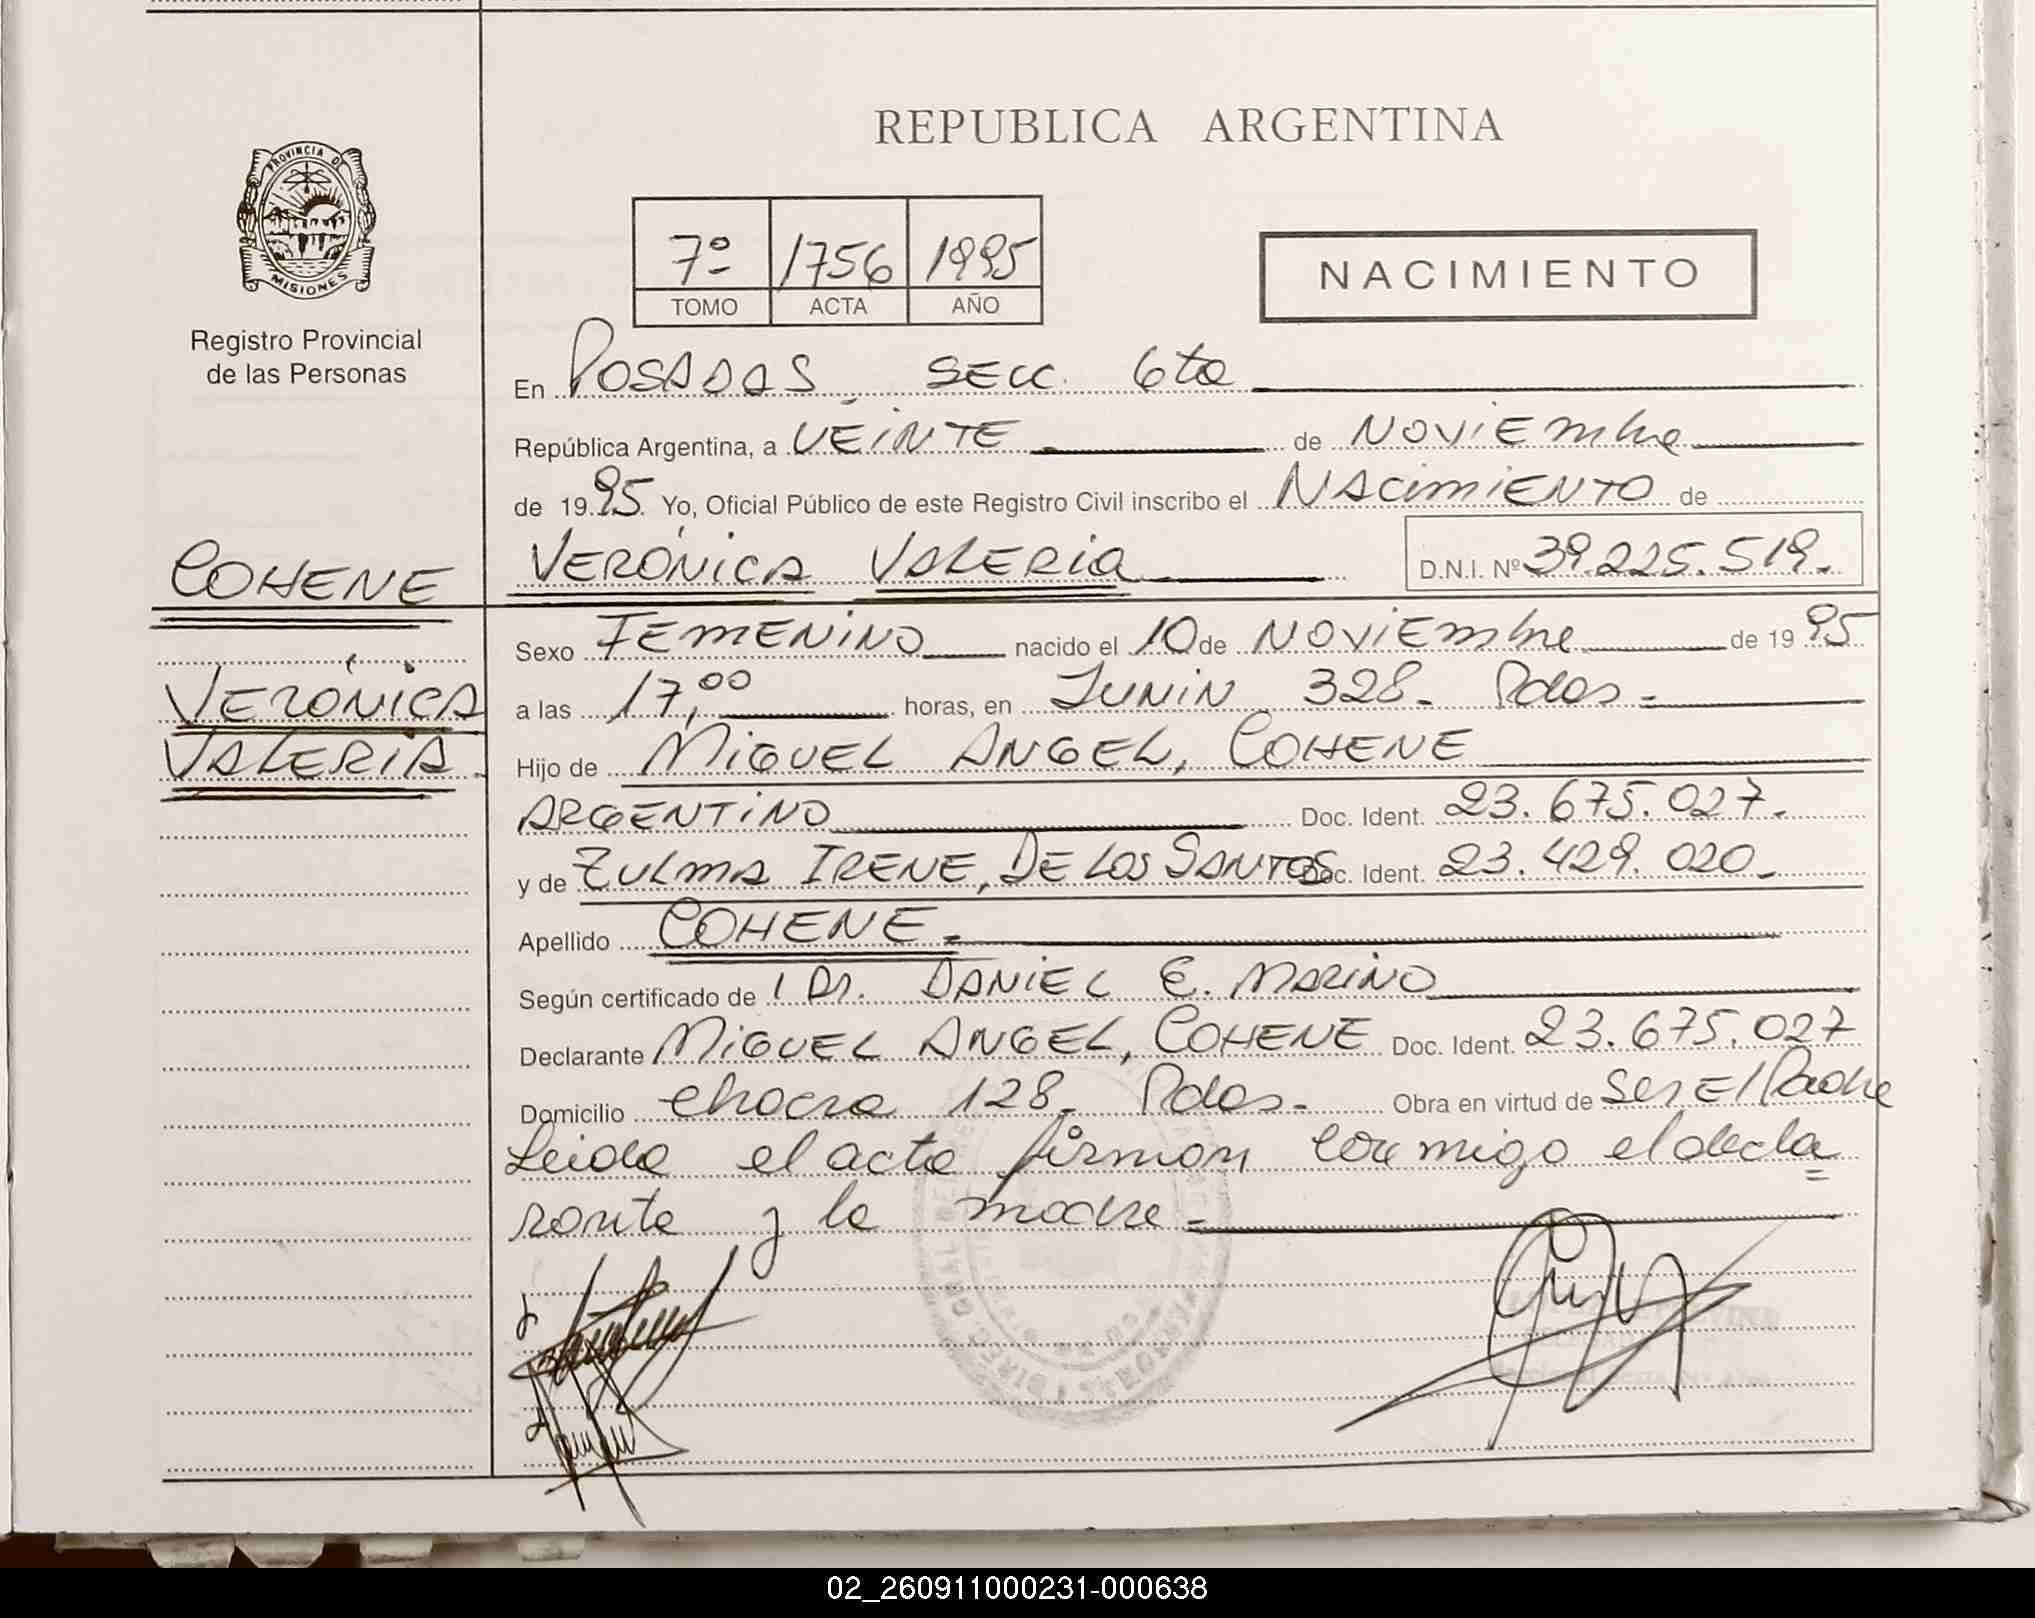 REPUBLICA ARGENTINA
PROVINCIA DE
MISIONES
Registro Provincial
de las Personas
7º 1756 1995
TOMO ACTA AÑO
NACIMIENTO
En POSADAS SECC. 6ta
República Argentina, a VEINTE de NOVIEmbre
de 1995 Yo, Oficial Público de este Registro Civil inscribo el NACimiENTO de
COHENE
VERÓNICA VALERIA D.N.I. Nº 39.225.519.
Sexo FEMENINO nacido el 10 de NOVIEmbre de 1995
VERÓNICA
a las 17,00 horas, en JUNIN 328- Pdas.=
VALERIA.
Hijo de MIGUEL ANGEL, COHENE
ARGENTINO Doc. Ident. 23.675.027.
y de ZULMA IRENE, DE LOS SANTOS Doc. Ident. 23.429.020.
Apellido COHENE.
Según certificado de 1 Dr. DANIEL E. MARINO
Declarante MIGUEL ANGEL, COHENE Doc. Ident. 23.675.027
Domicilio chacra 128. Pdas. Obra en virtud de Ser El Padre
Leida el acta firman conmigo el decla=
rante y la madre.=
02_260911000231-000638